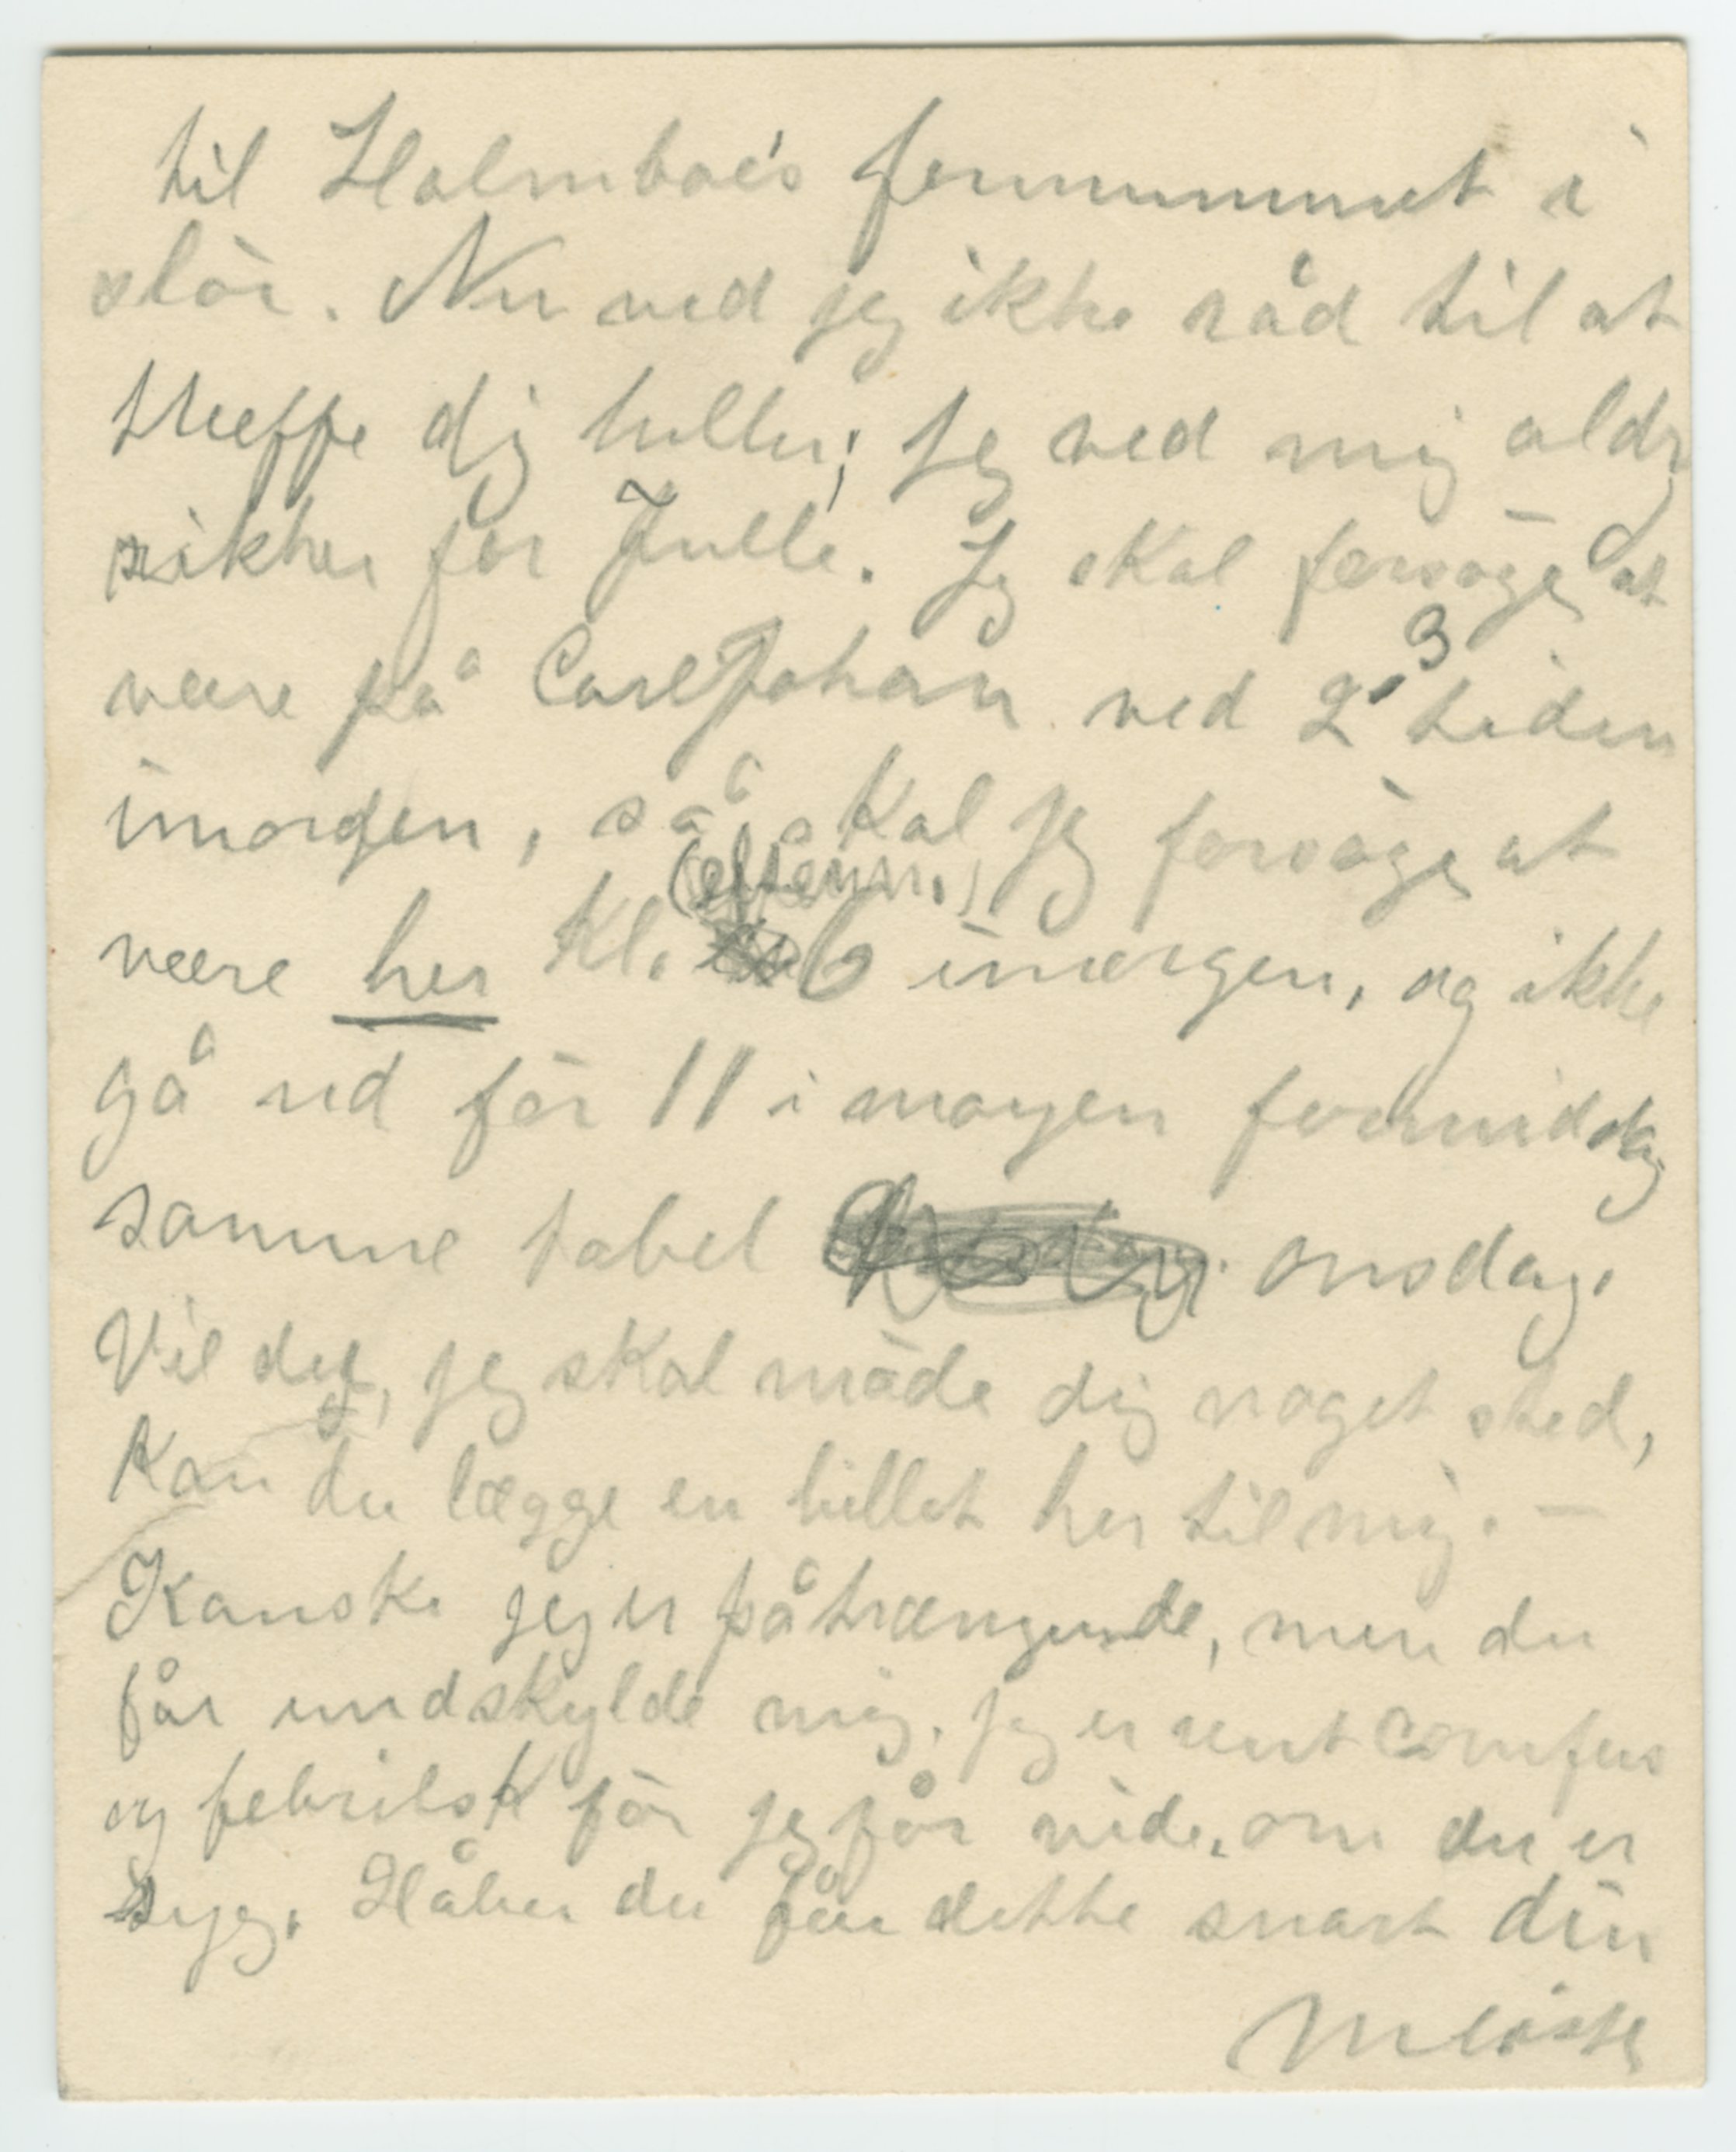 til Holmboe's fermummet i
slör. Nu ved jeg ikke råd til at
træffe dig heller; jeg ved mig aldrig
sikker for Julle. Jeg skal forsöge at
være på Carl Johan ved 2-3 tiden
imorgen, så skal jeg forsöge at
være her Kl. (efterm.) 6 imorgen, og ikke
gå ud för 11 i morgen formiddag
samme tabel onsdag.
Vil du, jeg skal möde dig noget sted,
Kan du lægge en billet her til mig. –
Kanske jeg er påtrængende, men du
får undskylde mig. Jeg er rent confus
og febrilsk för jeg får vide, om du er
syg. Håber du får dette snart din